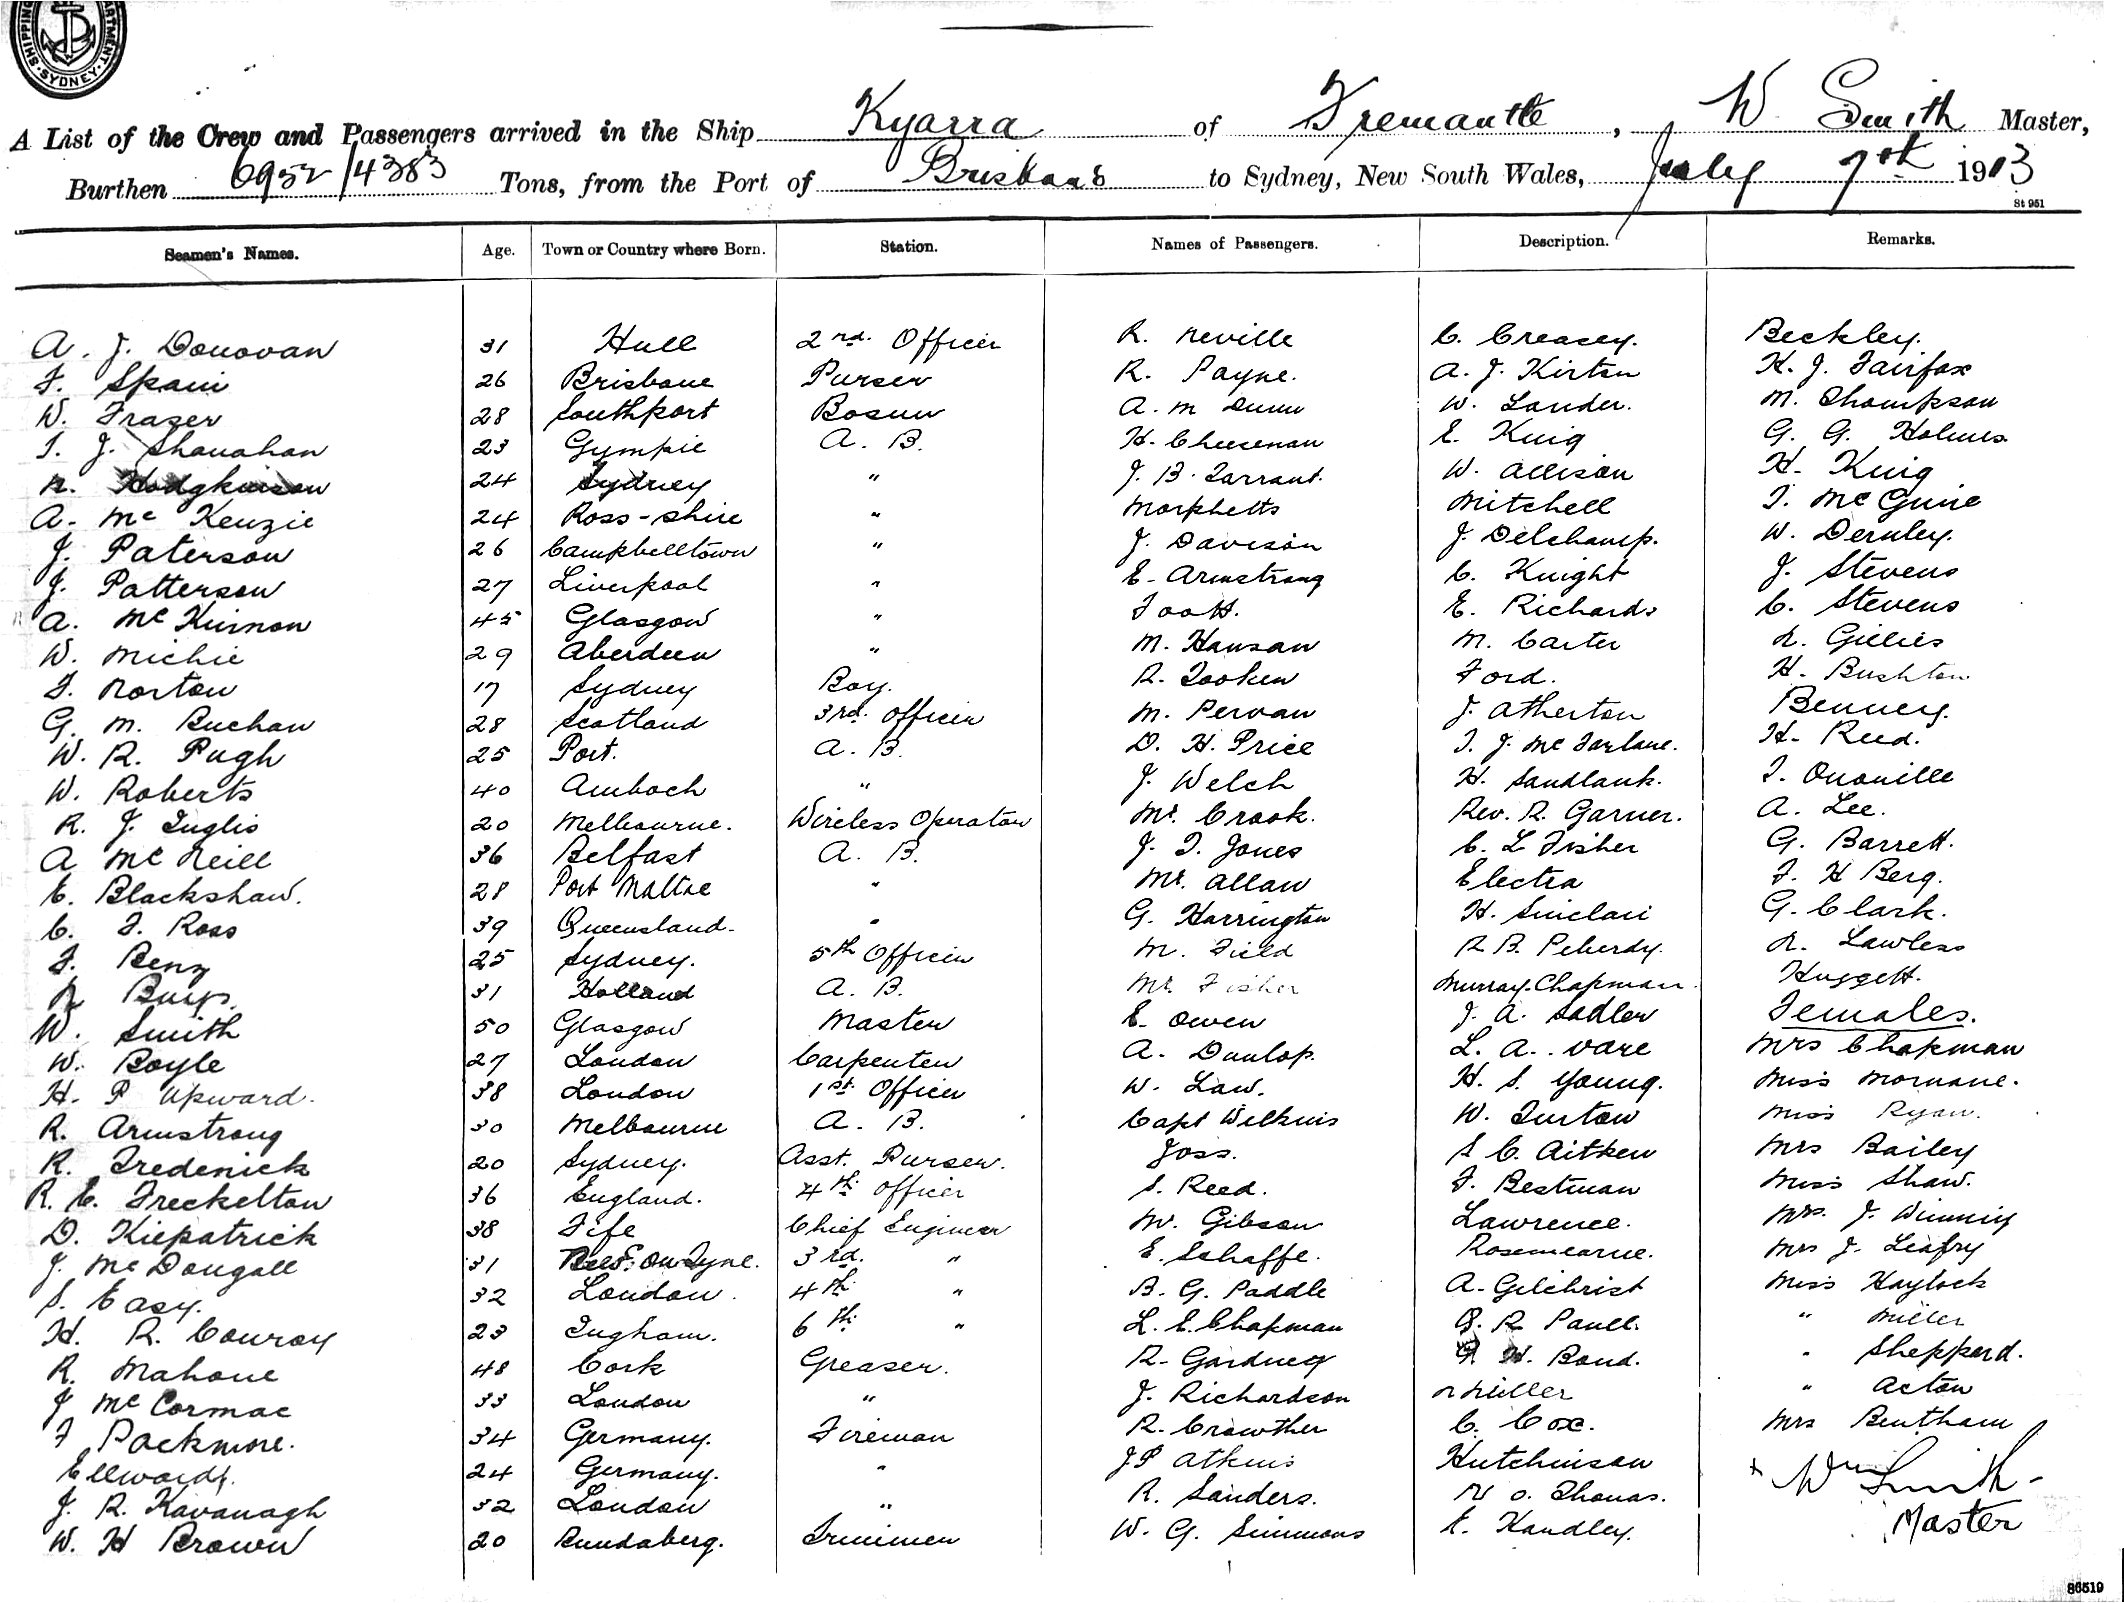 SHIPPING DEPARTMENT. SYDNEY
A List of the Crew and Passengers arrived in the Ship Kyarra of Fremantle, W Smith Master,
Burthen 6952/4383 Tons, from the Port of Brisbane to Sydney, New South Wales, July 7th 1913
St 951
Seamen's Names. Age. Town or Country where Born. Station. Names of Passengers. Description. Remarks.
A. J. Donovan 31 Hull 2nd. Officer R. Neville C. Creasey. Beckley.
F. Spain 26 Brisbane Purser R. Payne. A. J. Kirton H. J. Fairfax
W. Frazer 28 Southport Bosun A. M Dunn W. Lander. M. Thompson
T. J. Shanahan 23 Gympie A. B. H. Cheeseman E. King G. G. Holmes
Hodgkinson 24 Sydney " J. B. Tarrant. W. Allison H. King
A. Mc Kenzie 24 Ross-shire " Morphetts Mitchell T. McGuire
J. Paterson 26 Campbelltown " J. Davison J. Delchamp. W. Dernley.
J. Patterson 27 Liverpool " E. Armstrong C. Knight J. Stevens
A. McKinnon 45 Glasgow " Foott. E. Richards C. Stevens
W. Michie 29 Aberdeen " M. Hansan M. Carter R. Gillies
F. Norton 17 Sydney Boy. R. Tooken Ford. H. Bushton
G. M. Buchan 28 Scotland 3rd. Officer M. Pervan J. Atherton Bennery.
W. R. Pugh 25 Port. A. B. D. H. Price T. J. McFarlane. H. Reed.
W. Roberts 40 Amboch " J. Welch H. Sandbank. T.
R. J. Inglis 20 Melbourne. Wireless Operator Mr. Crook. Rev. R. Garner. A. Lee.
A McNeill 36 Belfast A. B. J. T. Jones C. L Fisher G. Barrett.
C. Blackshaw. 28 Port " Mr. Allan Electra F. H Berg.
C. F. Ross 39 Queensland. " G. Harrington H. Sinclair G. Clark.
F. Benz 25 Sydney. 5th Officer M. Field R B. Peberdy. R. Lawless
31 Holland A. B. Mr. Fisher Murray-Chapman. Huggett.
W. Smith 50 Glasgow Master E. Owen J. A. Sadler Females.
W. Boyle 27 London Carpenter A. Dunlop. L. A. Vare Mrs Chapman
H. P Upward. 38 London 1st. Officer W. Law. H. S. Young. Miss Mornane.
R. Armstrong 30 Melbourne A. B. Capt Wilkins W. Turton Miss Ryan.
R. Frederick 20 Sydney. Asst. Purser. Joss. S C. Aitken Mrs Bailey
R. C. Freckelton 36 England. 4th. Officer S. Reed. F. Bestman Miss Shaw.
D. Kilpatrick 38 Fife Chief Engineer W. Gibson Lawrence. Mrs. J. Winning
J. McDougall 31 On Tyne. 3rd. " E. Schaffe. Rosemearne. Mrs J.
S. Easy. 32 London. 4th. " B. G. Paddle A. Gilchrist Miss Haylock
H. R. Conroy 23 Ingham. 6th. " L. E. Chapman R Panell. " Miller
R. Mahone 48 Cork Greaser. R. Gardner H. Bond. " Sheppard.
J McCormac 33 London " J. Richardson Miller " Acton
F Packmore. 34 Germany. Fireman R. Crowther C. Cox. Mrs Bentham
Ellwardt. 24 Germany. " J P Atkins Hutchinson x Wm Smith
J. R. Kavanagh 32 London " R. Sanders. N O. Thomas. Master
W. H Brown 20 Bundaberg. Trimmer W. G. Simmons E. Handley.
86519